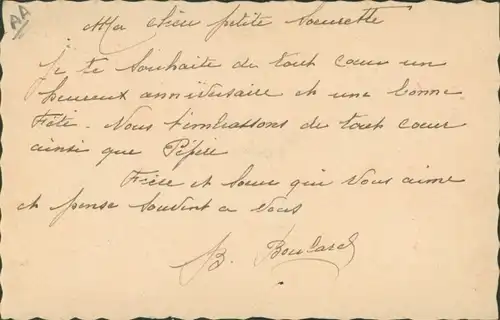 AA
Ma chère petite Soeurette
Je te Souhaite de tout coeur un
heureux anniversaire et une bonne
Fête. Nous t'embrassons de tout coeur
ainsi que Pépée
Frère et Soeur qui vous aime
et pense souvent a vous
B. Boulard